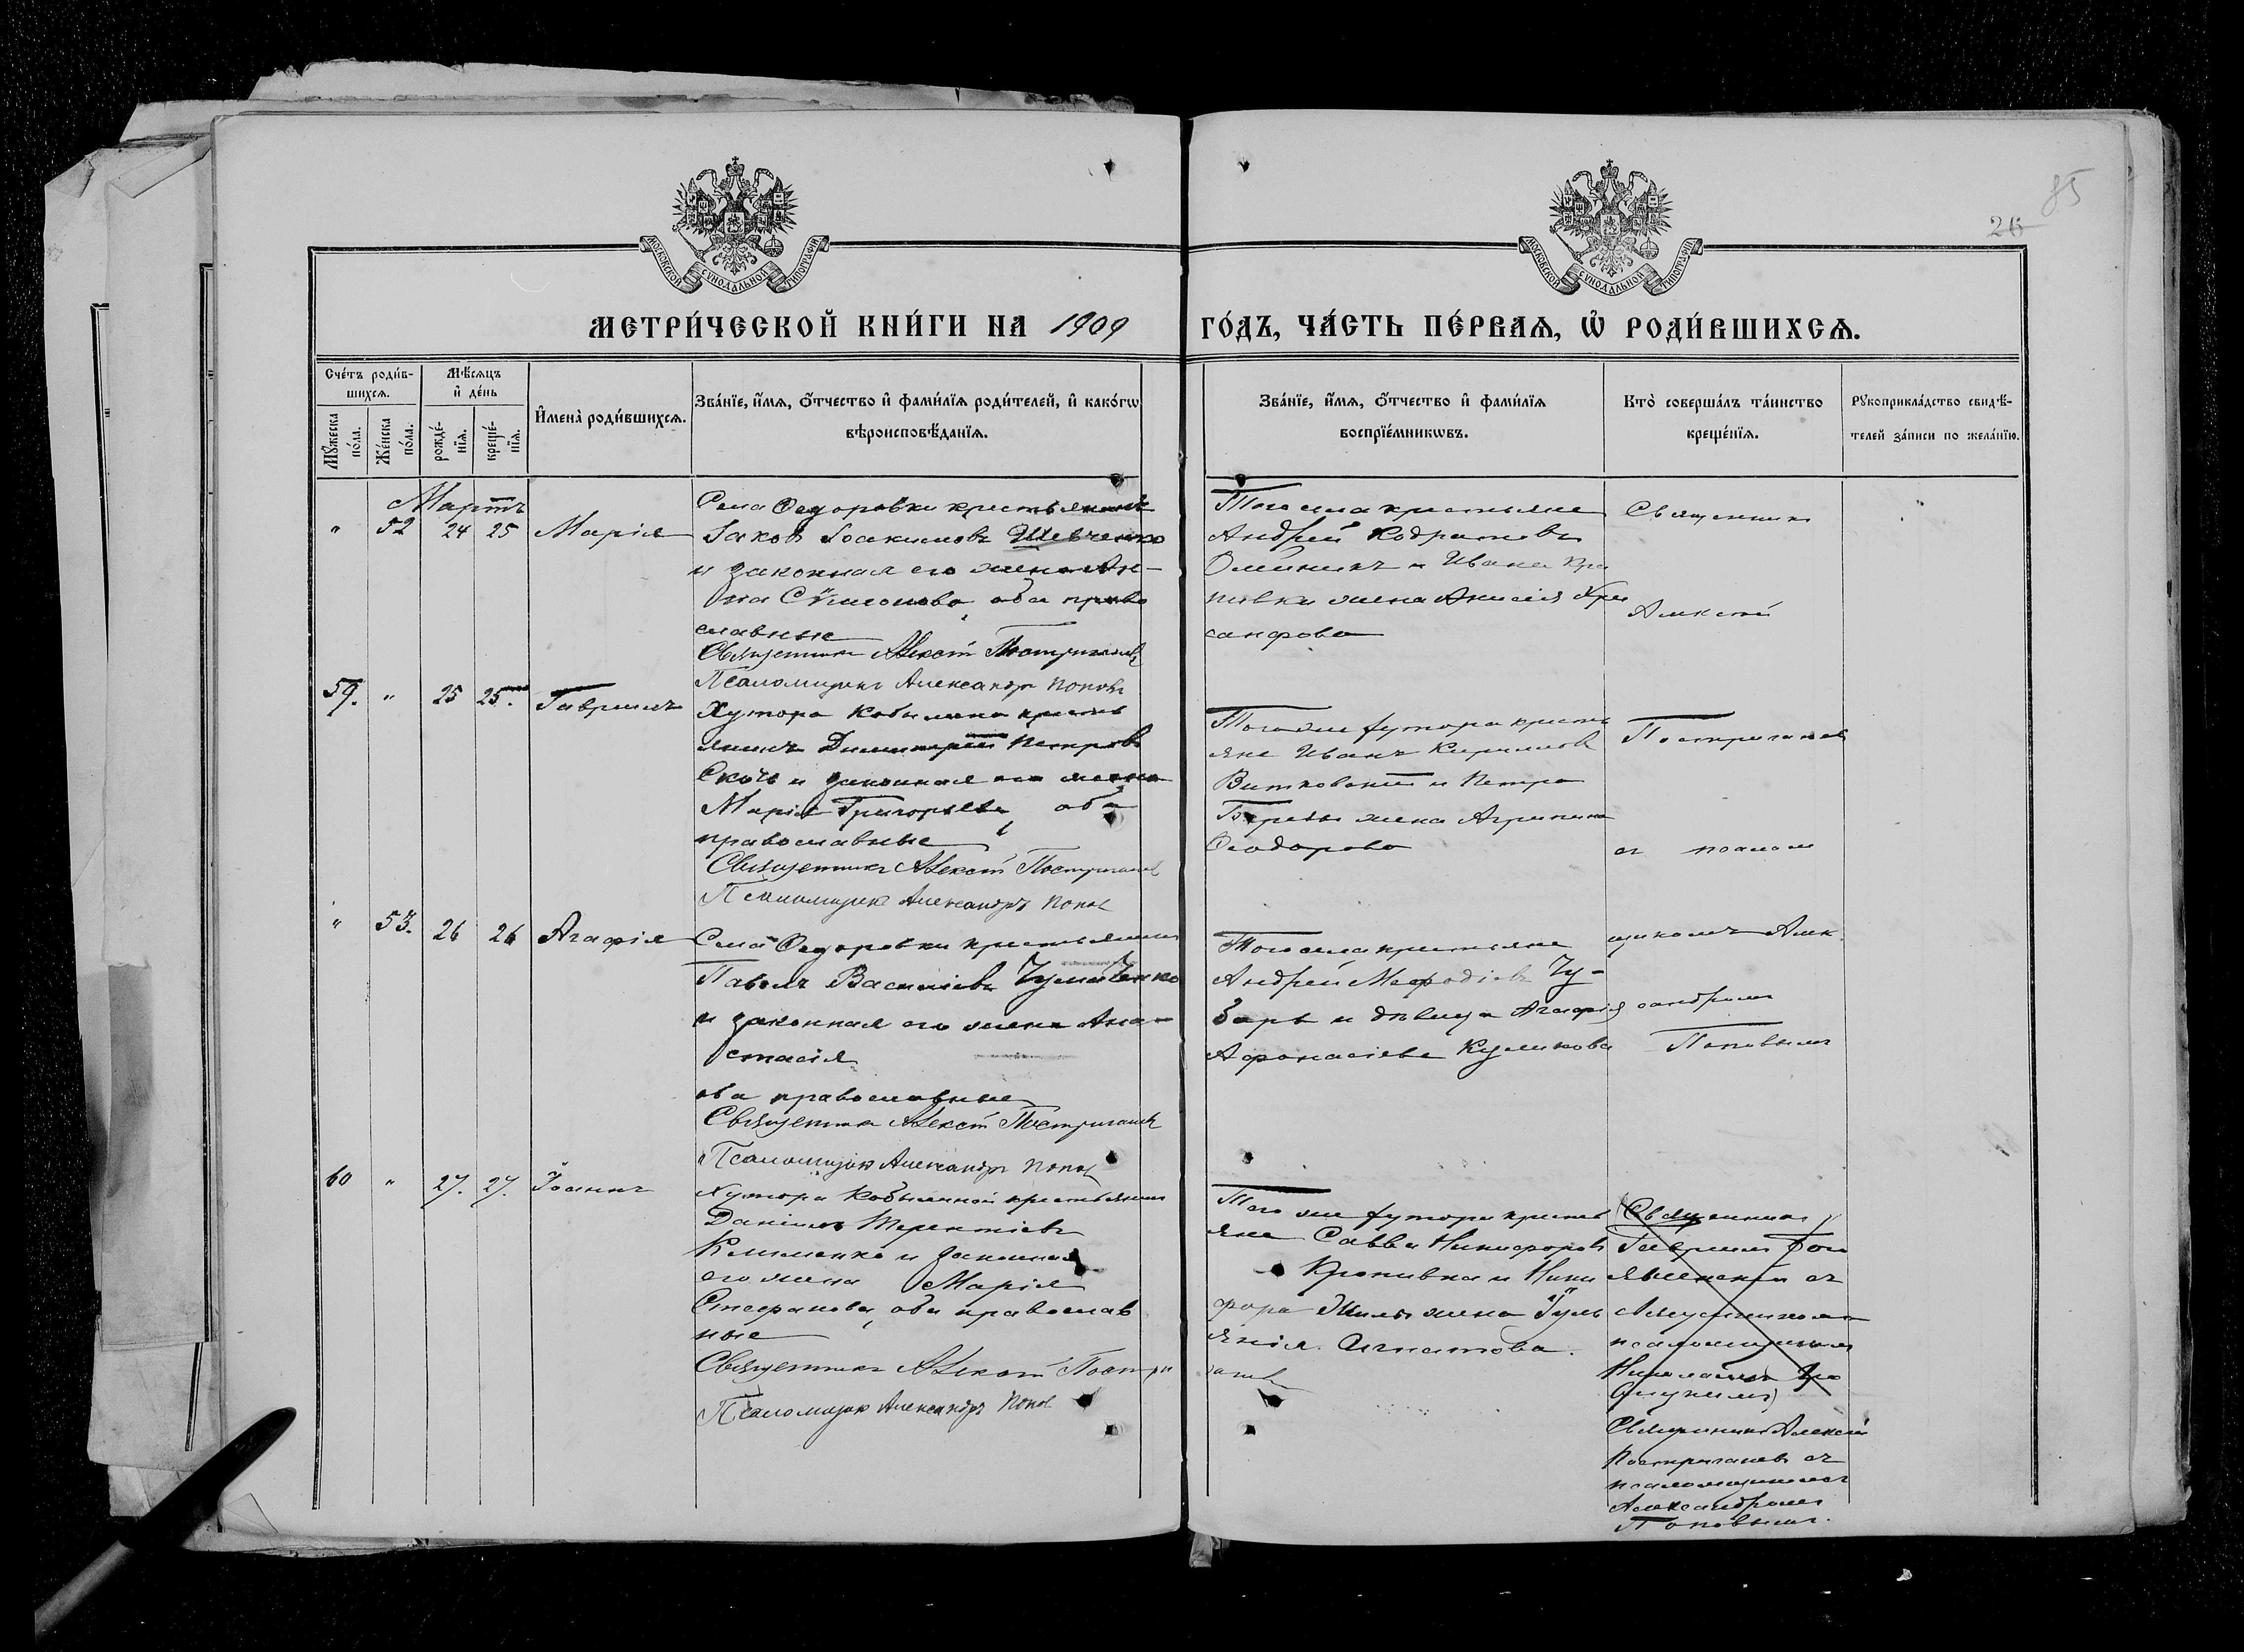 85
26
МОСКОВСКОЙ СУНОДАЛЬНОЙ ТИПОГРАФІИ
МОСКОВСКОЙ СУНОДАЛЬНОЙ ТИПОГРАФІИ
МЕТРИ́ЧЕСКОЙ КНИ́ГИ НА 1909
ГО́ДЪ, ЧА́СТЬ ПЕ́РВАѦ, Ѿ РОДИ́ВШИХСѦ.
Сче́тъ роди́в-
шихсѧ.
Мꙋ́жеска по́ла.
Же́нска по́ла.
Мѣ́сѧцъ
и҆ де́нь
рожде́-
нїѧ.
креще́-
нїѧ.
И҆мена̀ роди́вшихсѧ.
Зва́нїе, и҆́мѧ, ѻ҆́тчество и҆ фами́лїѧ роди́телей, и҆ како́гѡ
вѣроисповѣ́данїѧ.
Зва́нїе, и҆́мѧ, ѻ҆́тчество и҆ фами́лїѧ
воспрїе́мникѡвъ.
Кто̀ соверша́лъ та́инство
креще́нїѧ.
Рꙋкоприкла́дство свидѣ́-
телей за́писи по жела́нїю.
Мартъ
" 52 24 25 Марія
Села Ѳедоровки крестьянинъ
Іаковъ Іоакимовъ Шевченко
и законная его жена Ан-
на Сѵмеонова, оба право
славные
Священникъ Алексѣй Постригановъ
Псаломщикъ Александръ Поповъ
Того села крестьяне
Андрей Кодратовъ
Олейникъ и Ивана Кро
пивки жена Анисія Хри
санфова
Священникъ
Алексѣй
59. " 25 25. Гавріилъ
Хутора Кобылина кресть
янинъ Димитрій Петровъ
Скочъ и законная его жена
Марія Григорьева, оба
православные
Священникъ Алексѣй Постригановъ
Псаломщикъ Александръ Поповъ
Того же хутора кресть
яне Иванъ Кириловъ
Витковскій и Петра
Березы жена Агрипина
Ѳеодорова
Постригановъ
съ псалом
" 53. 26 26 Агафія
Села Ѳедоровки крестьянинъ
Павелъ Василіевъ Чумаченко
и законная его жена Ана-
стасія
оба православные
Священникъ Алексѣй Постригановъ
Псаломщикъ Александръ Поповъ
Того села крестьяне
Андрей Меѳодіевъ Чу-
барь и дѣвица Агафія
Афонасіева Куликова
щикомъ Алек
сандромъ
Поповымъ
60 " 27. 27. Іоаннъ
Хутора Кобылиной крестьянинъ
Даніилъ Терентіевъ
Клименко и законная
его жена Марія
Стефанова, оба православ
ные
Священникъ Алексѣй Постри
гановъ
Псаломщикъ Александръ Поповъ
Того же хутора кресть
яне Савва Никифоровъ
Кропивка и Ники
фора жена Гуль
янія Игнатова.
Священникъ
Гавріилъ
съ
псаломщикомъ
Николаемъ
Священникъ Алексѣй
Постригановъ съ
псаломщикомъ
Александромъ
Поповымъ.